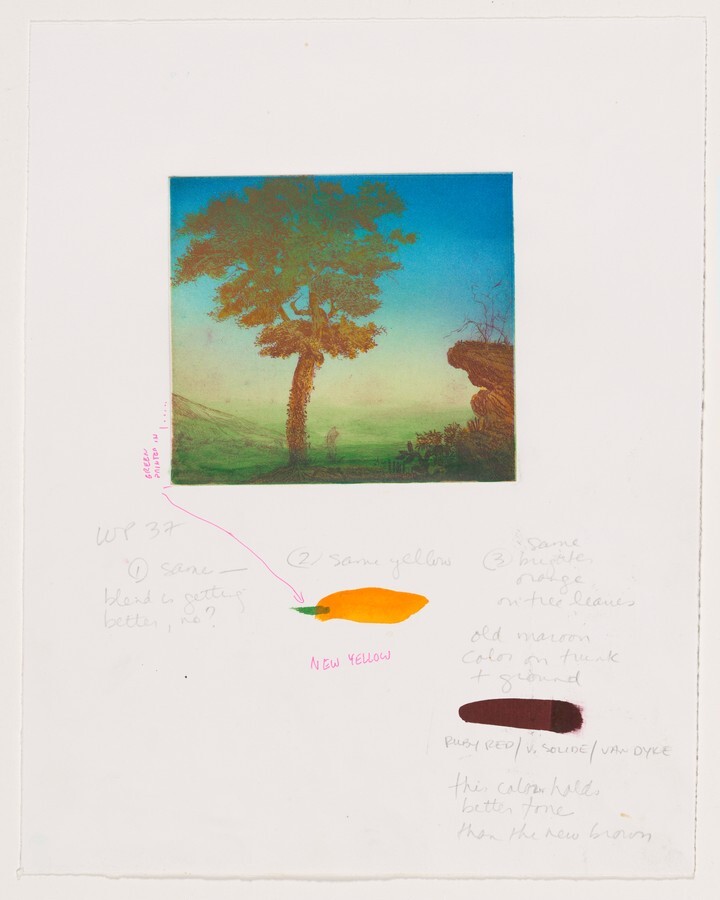 GREEN
PRINTED IN
WP 37
① same —
blend is getting
better, no?
② same yellow
③ same
brighter
orange
on tree leaves
NEW YELLOW
old maroon
color on trunk
+ ground
RUBY RED / V. SOLIDE / VAN DYKE
this colour holds
better tone
than the new brown